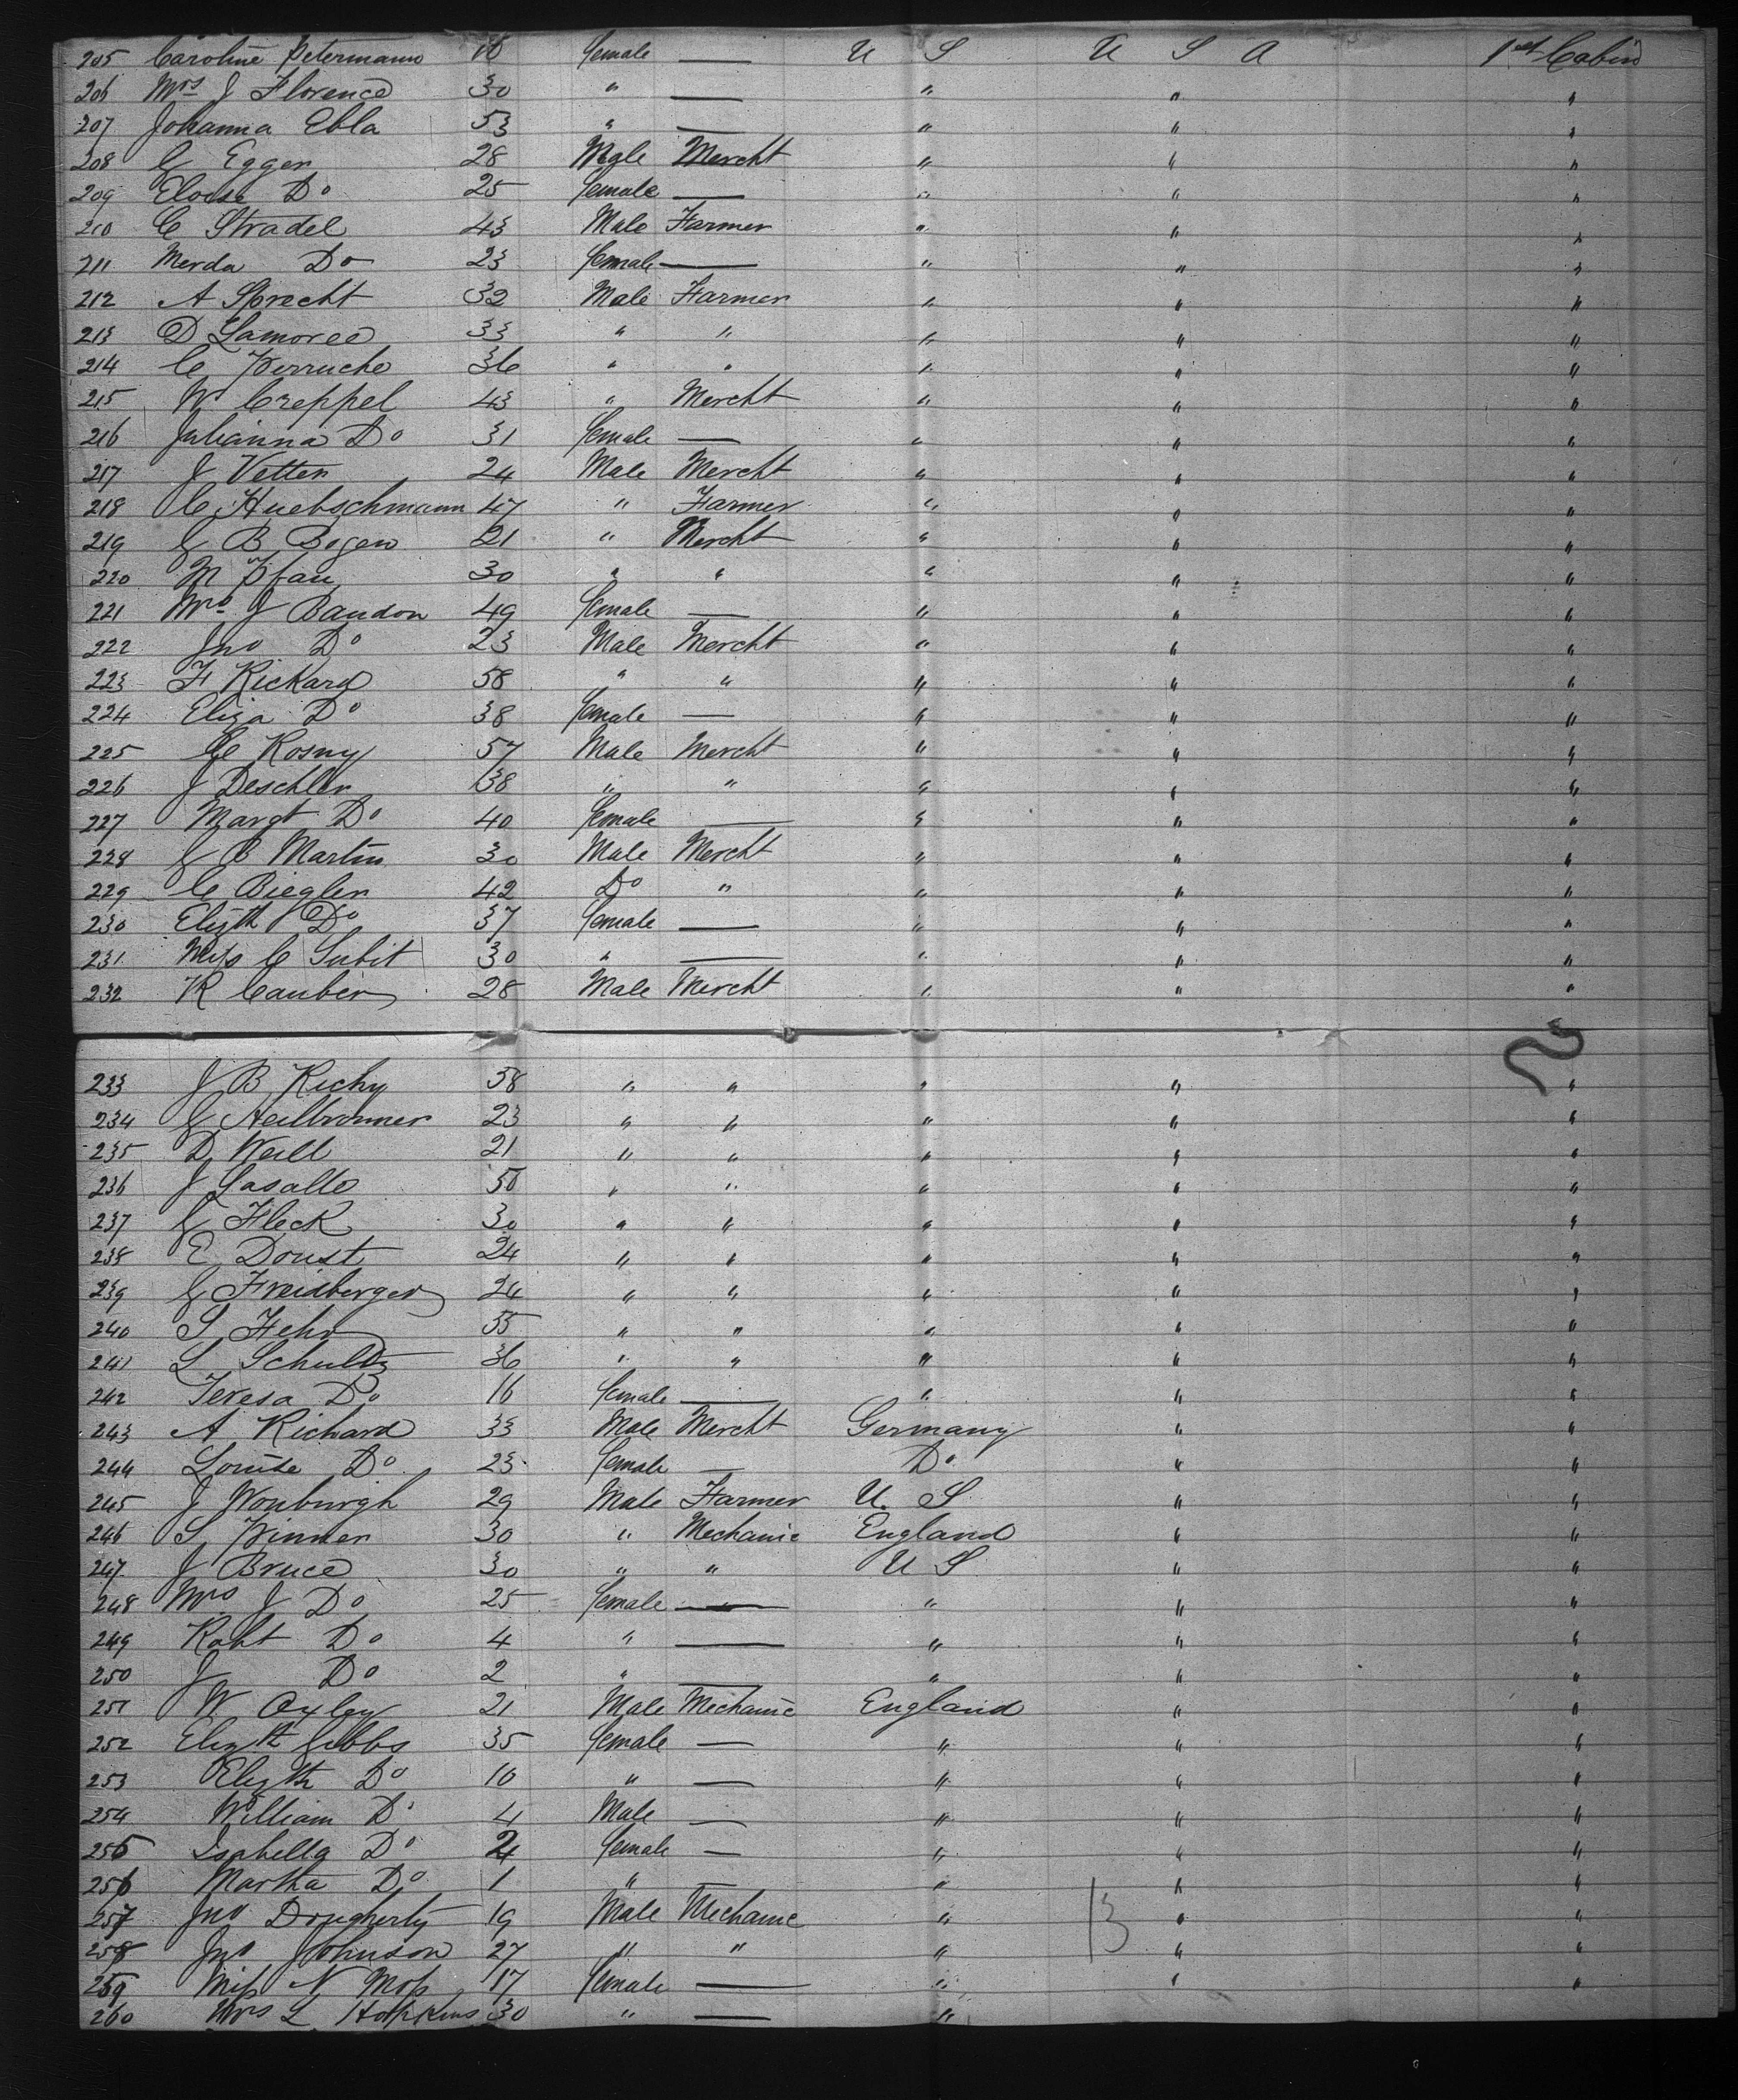 205 Caroline Petermann 18 female — U S U S A 1st Cabin
206 Mrs J Florence 30 " — " " "
207 Johanna Ebla 53 " — " " "
208 G Egger 28 Male Mercht " " "
209 Eloese Do 25 female — " " "
210 C Stradel 43 Male Farmer " " "
211 Merda Do 23 female — " " "
212 A Sprecht 32 Male Farmer " " "
213 D Lamoree 33 " " " " "
214 C Perruche 36 " " " " "
215 W Creppel 43 " Mercht " " "
216 Julianna Do 31 female — " " "
217 J Vetter 24 Male Mercht " " "
218 C Huebschmann 47 " Farmer " " "
219 G B Bogen 21 " Mercht " " "
220 M Pfau 30 " " " " "
221 Mrs J Baudon 49 female — " " "
222 Jno Do 23 Male Mercht " " "
223 F Rickard 58 " " " " "
224 Eliza Do 38 female — " " "
225 C Rosny 57 Male Mercht " " "
226 J Deschler 38 " " " " "
227 Margt Do 40 female — " " "
228 G B Martin 30 Male Mercht " " "
229 C Biegler 42 Do " " " "
230 Elizth Do 37 female — " " "
231 Miss C Subit 30 " — " " "
232 R Caubin 28 Male Mercht " " "
233 J B Richy 38 " " " " "
234 G Heilbronner 23 " " " " "
235 D Weill 21 " " " " "
236 J Lasalle 50 " " " " "
237 G Fleck 30 " " " " "
238 E Doust 24 " " " " "
239 G Freidberger 24 " " " " "
240 S Fehr 55 " " " " "
241 L Schultz 36 " " " " "
242 Teresa Do 16 female — " " "
243 A Richard 33 Male Mercht Germany " "
244 Louise Do 23 female — Do " "
245 J Wonburgh 29 Male Farmer U. S " "
246 S Pinner 30 " Mechanic England " "
247 J Bruce 30 " " U S " "
248 Mrs J Do 25 female — " " "
249 Robt Do 4 " — " " "
250 J Do 2 " — " " "
251 W Oxley 21 Male Mechanic England " "
252 Elizth Gibbs 35 female — " " "
253 Elizth Do 10 " — " " "
254 William Do 4 Male — " " "
255 Isabella Do 2 female — " " "
256 Martha Do 1 " — " " "
257 Jno Dougherty 19 Male Mechanic " " "
258 Jno Johnson 27 " " " " "
259 Miss N Moss 17 female — " " "
260 Mrs L Hopkins 30 " — "
13